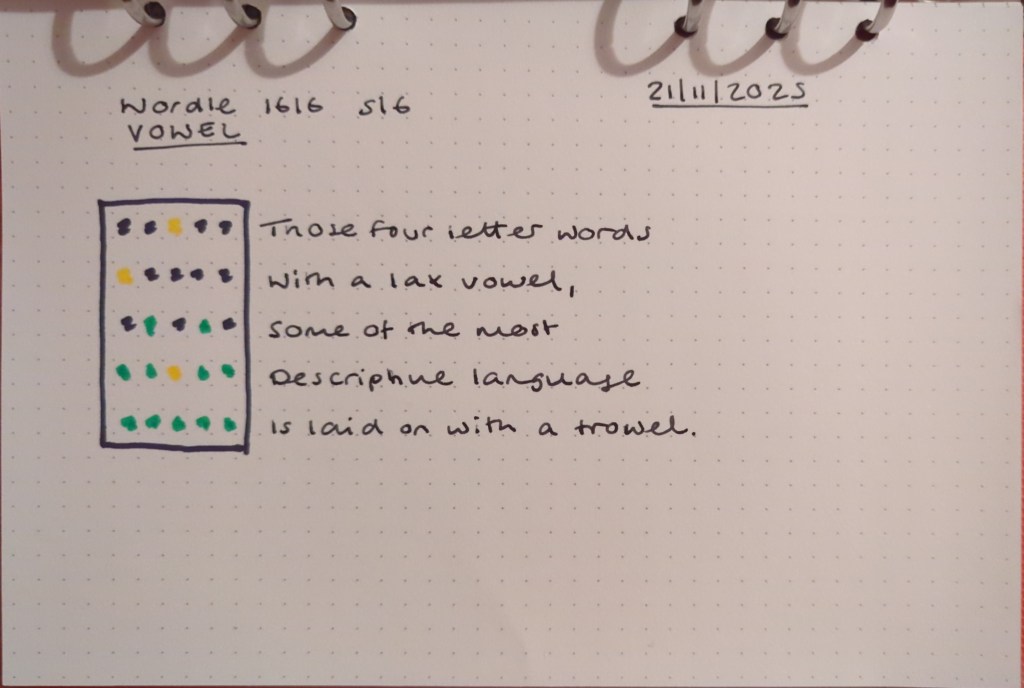 Wordle 1616 5/6
21/11/2025
VOWEL
Those four letter words
with a lax vowel,
some of the most
Descriptive language
Is laid on with a trowel.